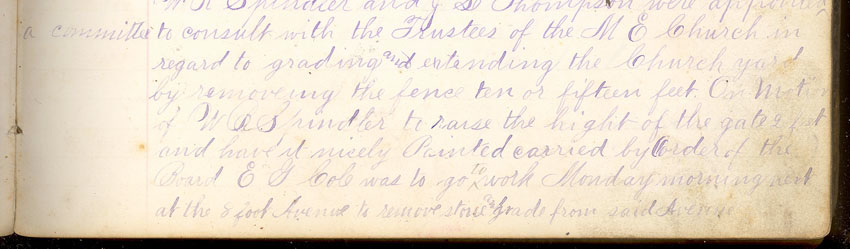 W R Spindler and J D Thompson were appointed
a committee to consult with the Trustees of the M E Church in
regard to grading and extending the Church yard
by removeing the fence ten or fifteen feet. On Motion
of W R Spindler to raise the hight of the gate 2 feet
and have it nicely Painted carried by order of the
Board E S Cole was to go to work Monday morning next
at the 8 foot Avenue to remove stone & grade from said Avenue